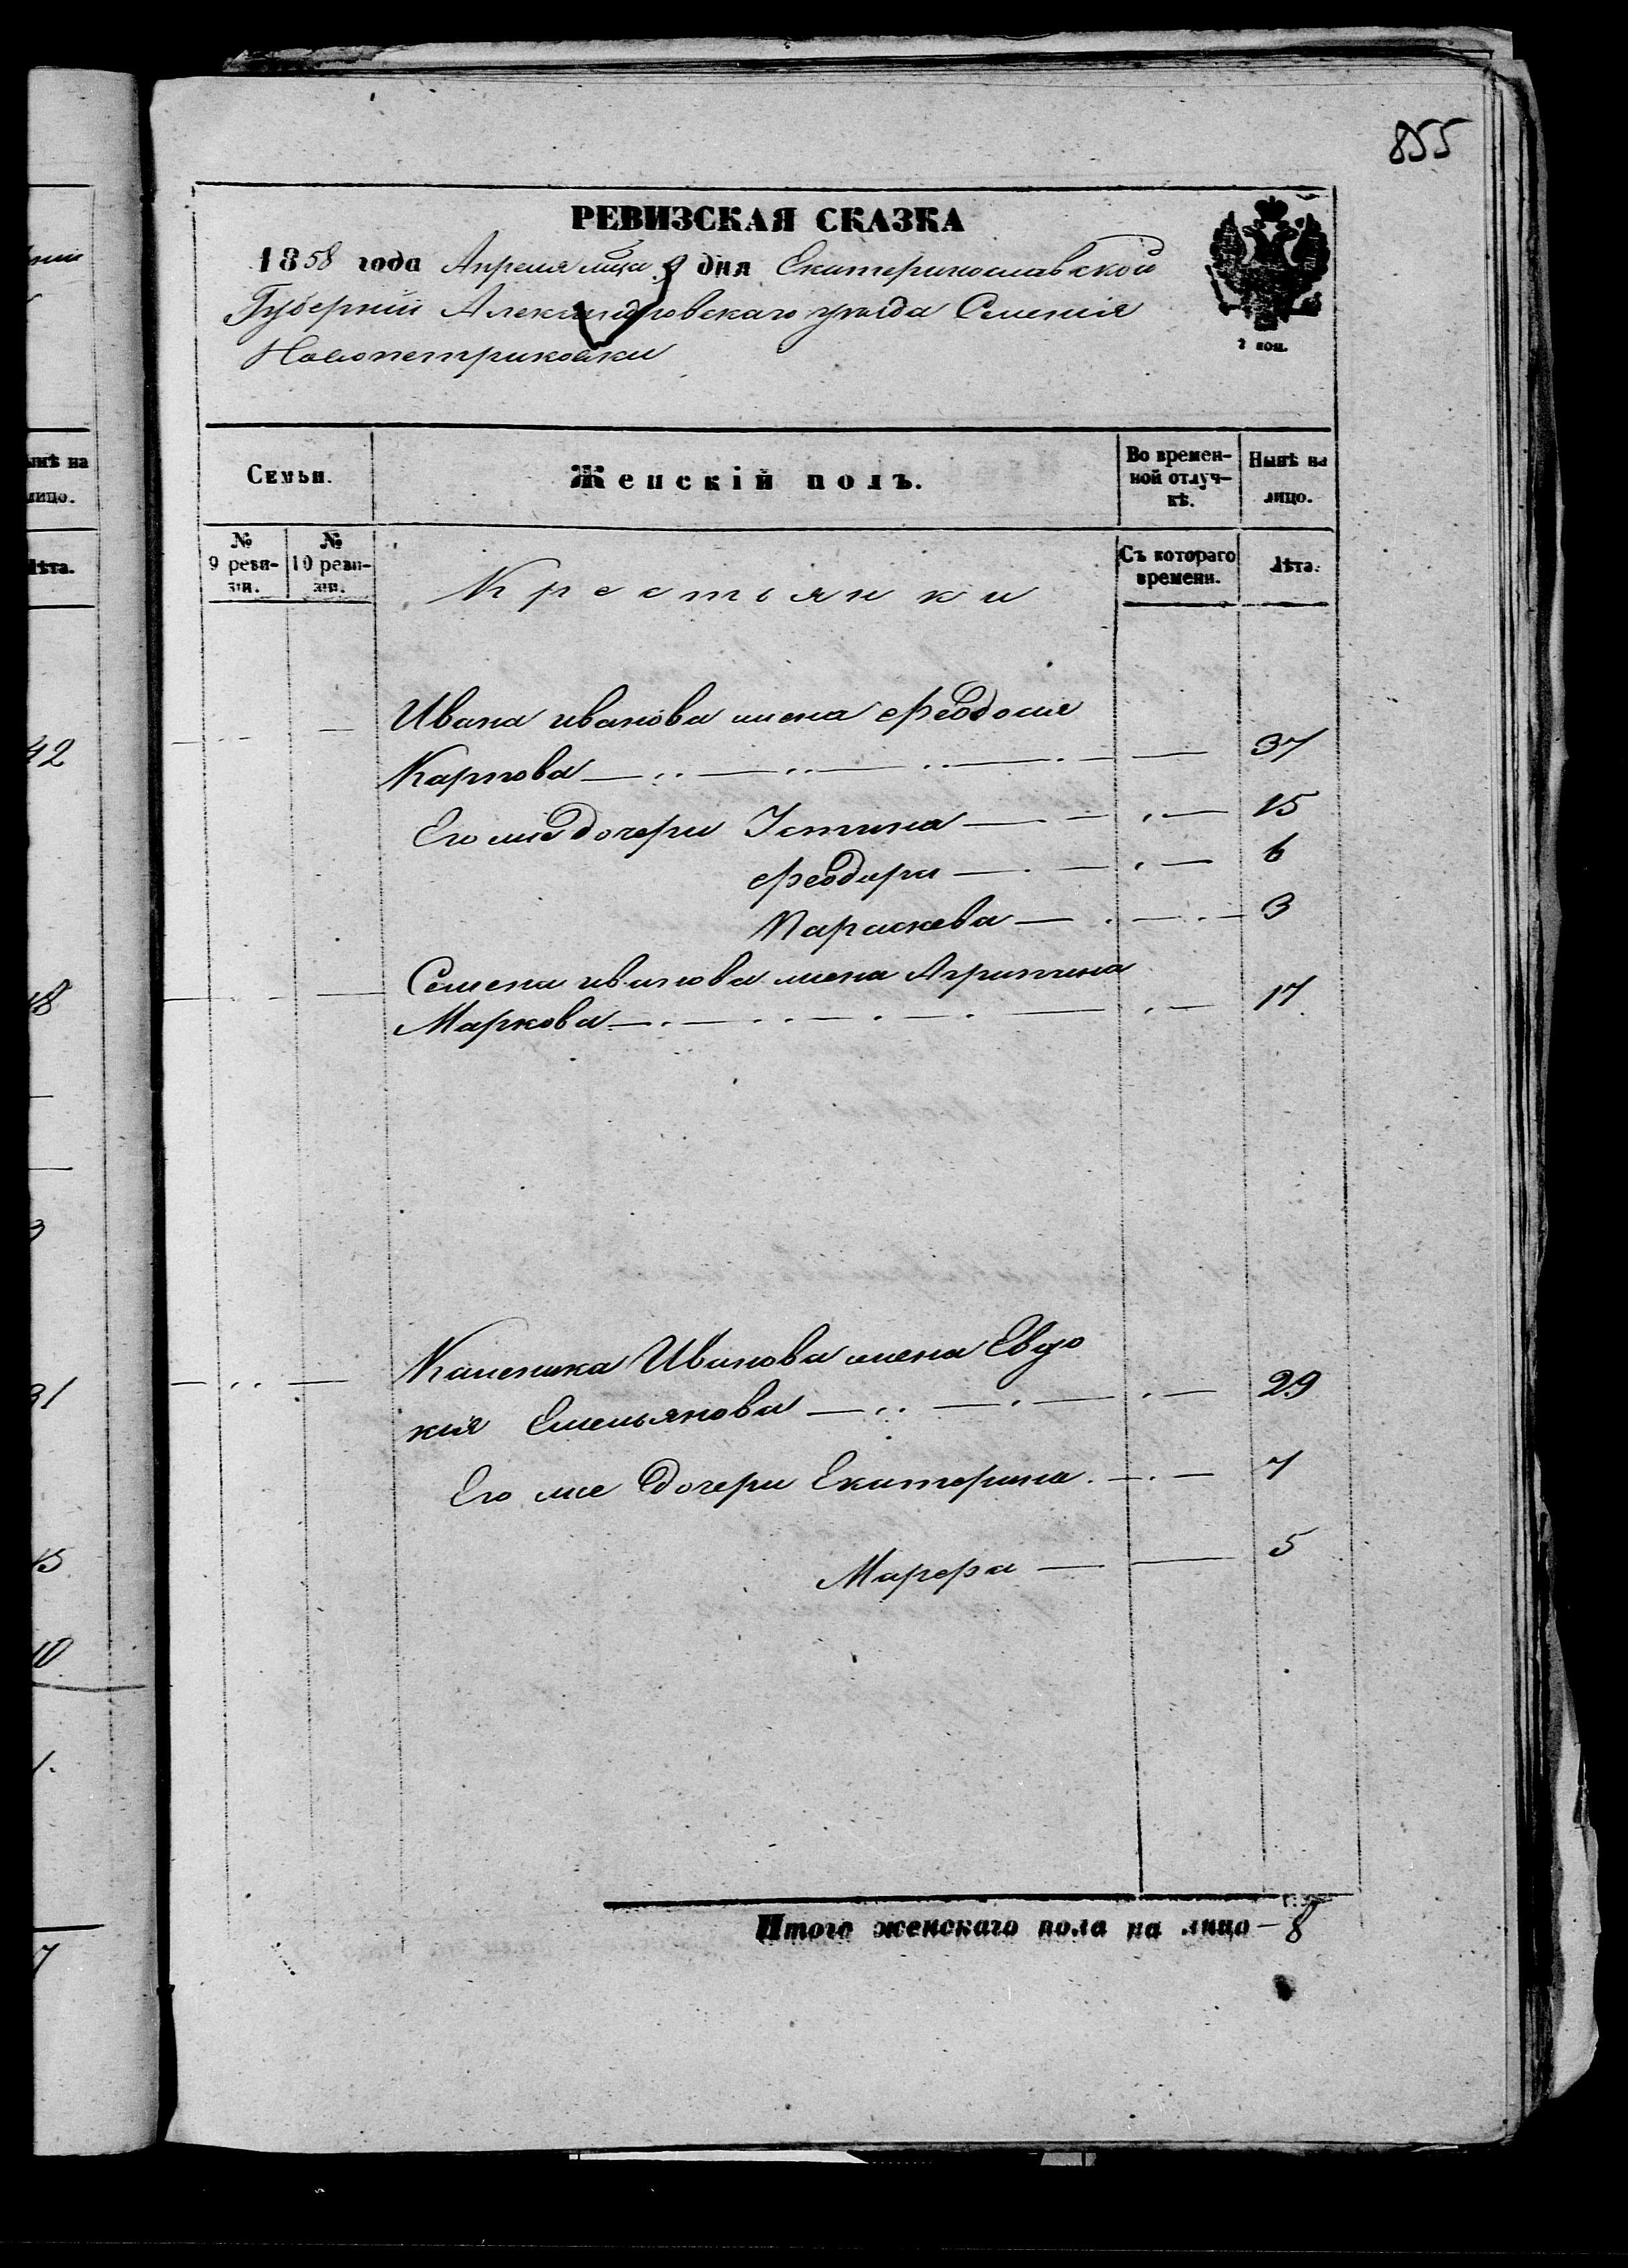 855
РЕВИЗСКАЯ СКАЗКА
1858 года Апреля мца 9 дня Екатеринославской
Губерніи Александровскаго уѣзда Селенія
Новопетриковки
2 коп.
Семьи.
Женскій полъ.
Во времен-
ной отлуч-
кѣ.
Нынѣ на
лицо.
№
9 реви-
зіи.
№
10 реви-
зіи.
Крестьянки
Съ котораго
времени.
Лѣта.
Ивана иванова жена Феодосия
Карпова 37
Его же дочери Устина 15
Феодора 6
Параскева 3
Семена иванова жена Агрипина
Маркова 17
Каленика Иванова жена Евдо
кия Емельянова 29
Его же дочери Екатерина 7
Марфа 5
Итого женскаго пола на лицо 8
ынѣ на
лицо.
лѣта.
42
18
31
15
10
1.
7